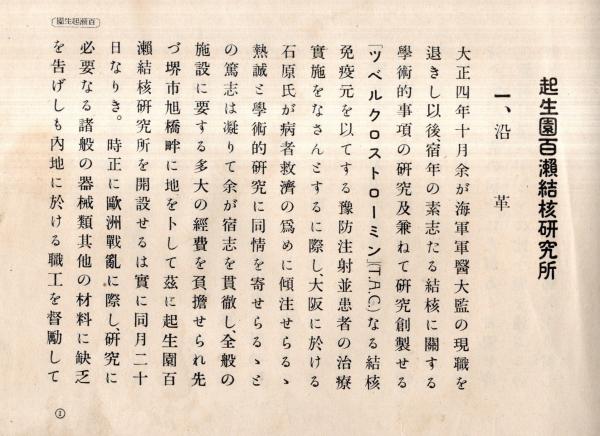 園生起瀨百
起生園百瀨結核硏究所
一、沿革
大正四年十月余が海軍軍醫大監の現職を
退きし以後、宿年の素志たる結核に關する
學術的事項の硏究及兼ねて硏究創製せる
「ツベルクロストローミン」(T.A.C.)なる結核
免疫元を以てする豫防注射並患者の治療
實施をなさんとするに際し、大阪に於ける
石原氏が病者救濟の爲めに傾注せらるゝ
熱誠と學術的硏究に同情を寄せらるゝと
の篤志は凝りて余が宿志を貫徹し、全般の
施設に要する多大の經費を負擔せられ先
づ堺市旭橋畔に地を卜して茲に起生園百
瀨結核硏究所を開設せるは實に同月二十
日なりき。時正に歐洲戰亂に際し、硏究に
必要なる諸般の器械類其他の材料に缺乏
を告げしも內地に於ける職工を督勵して
①